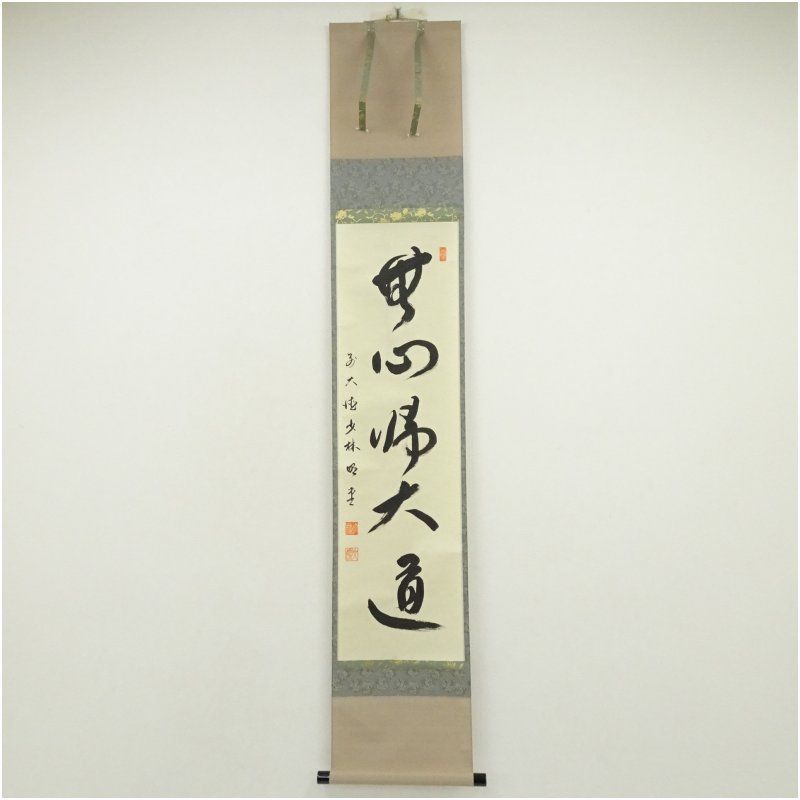 無心帰大道
前大徳少林明堂